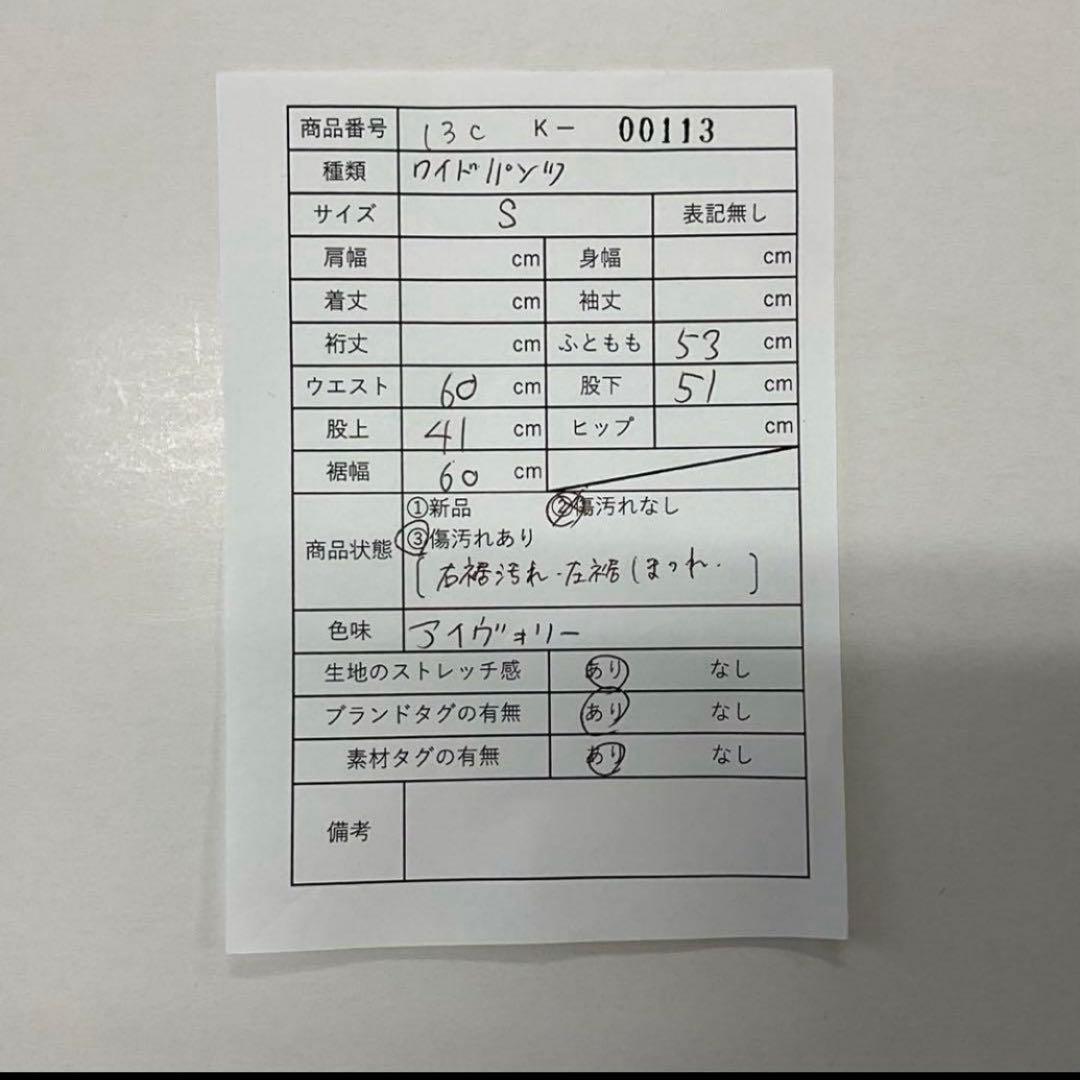 商品番号 13C K- 00113
種類 ワイドパンツ
サイズ S 表記無し
肩幅 cm 身幅 cm
着丈 cm 袖丈 cm
裄丈 cm ふともも 53 cm
ウエスト 60 cm 股下 51 cm
股上 41 cm ヒップ cm
裾幅 60 cm
商品状態 ①新品 ②傷汚れなし
③傷汚れあり
[右裾汚れ・左裾ほつれ.]
色味 アイヴォリー
生地のストレッチ感 あり なし
ブランドタグの有無 あり なし
素材タグの有無 あり なし
備考